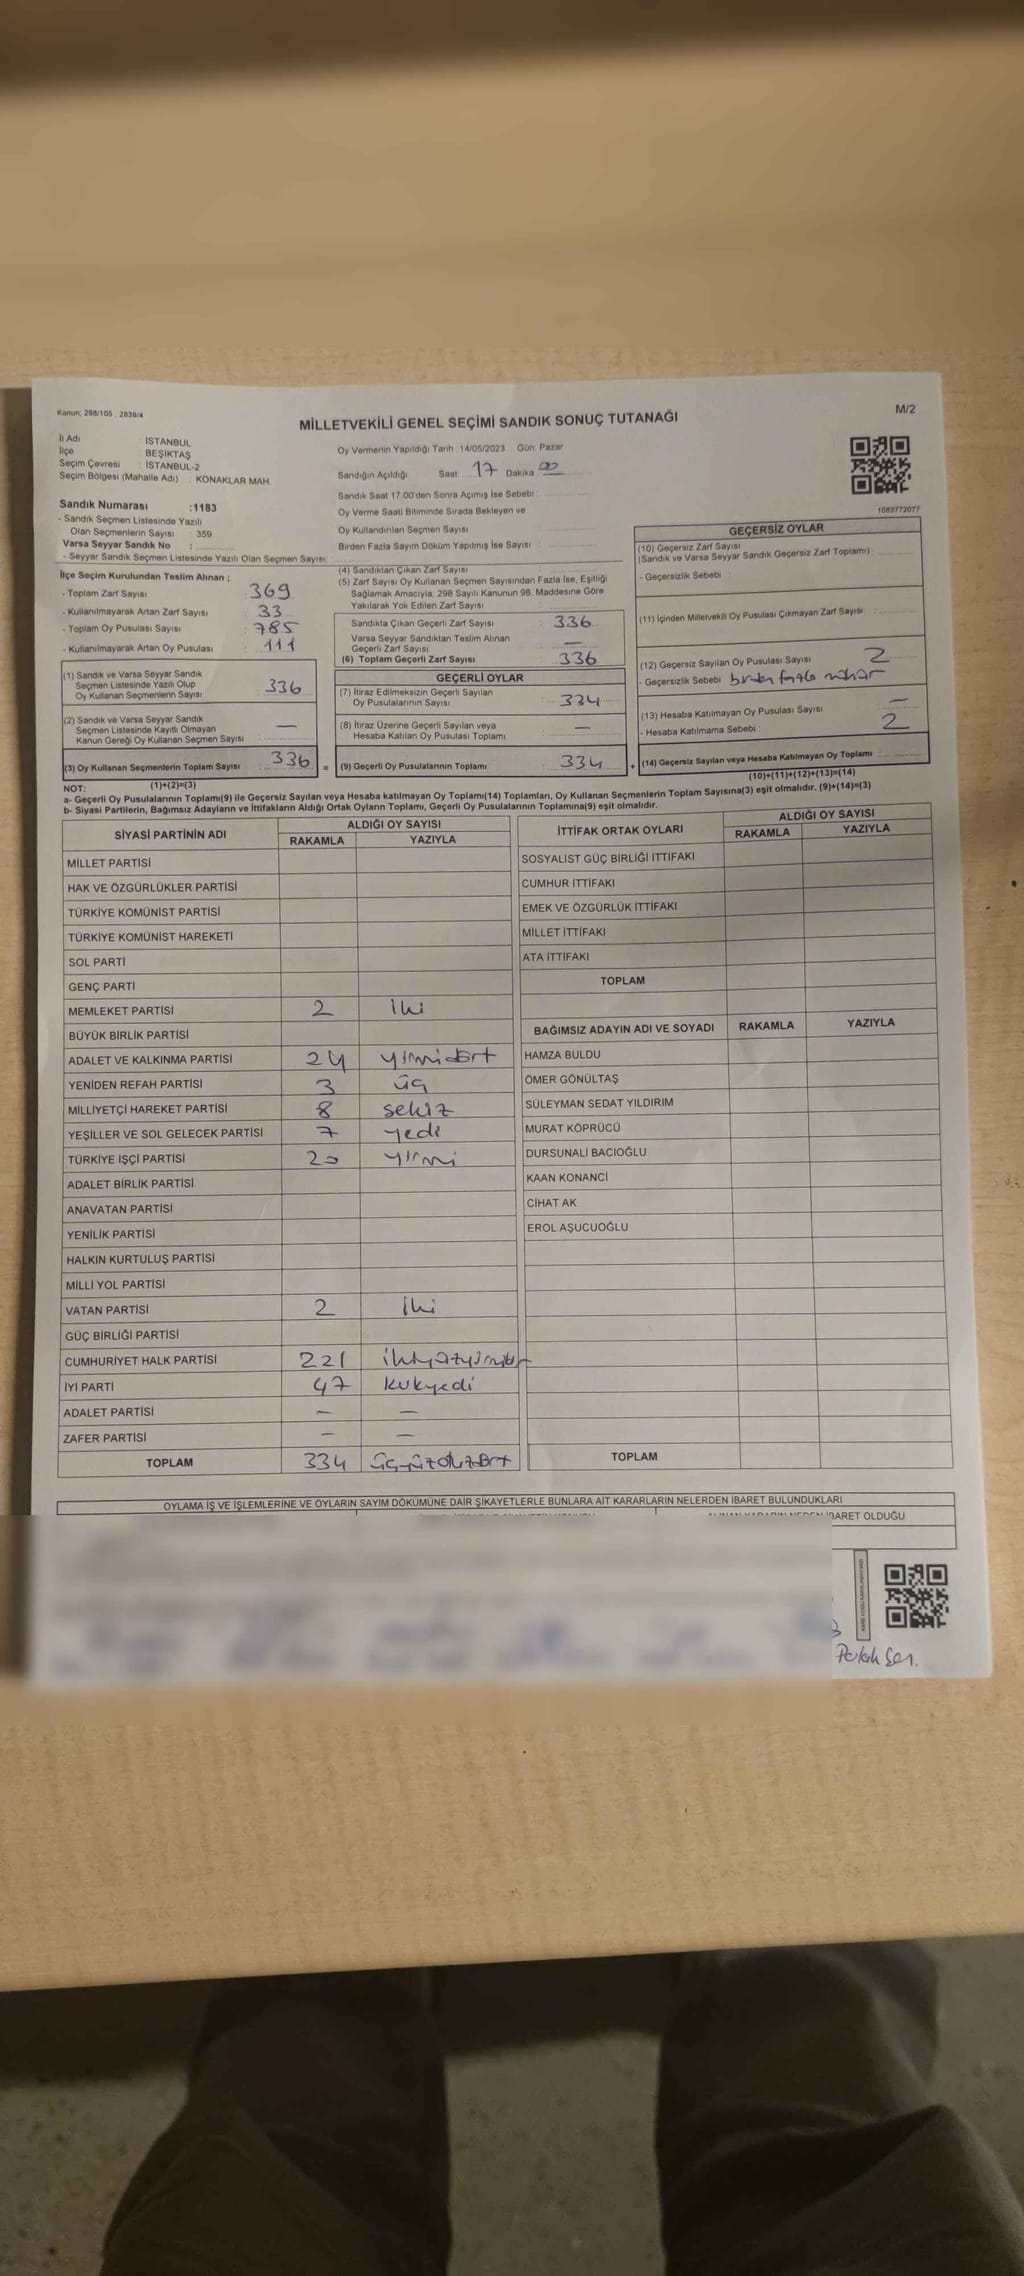 Kanun: 298/105 , 2839/4
M/2
MİLLETVEKİLİ GENEL SEÇİMİ SANDIK SONUÇ TUTANAĞI
İl Adı : İSTANBUL
İlçe : BEŞİKTAŞ
Seçim Çevresi : İSTANBUL-2
Seçim Bölgesi (Mahalle Adı) : KONAKLAR MAH.
Sandık Numarası :1183
- Sandık Seçmen Listesinde Yazılı
Olan Seçmenlerin Sayısı : 359
Varsa Seyyar Sandık No :
- Seyyar Sandık Seçmen Listesinde Yazılı Olan Seçmen Sayısı:
Oy Vermenin Yapıldığı Tarih 14/05/2023 Gün: Pazar
Sandığın Açıldığı Saat: 17 Dakika 00
Sandık Saat 17:00'den Sonra Açımış İse Sebebi :
Oy Verme Saati Bitiminde Sırada Bekleyen ve
Oy Kullandırılan Seçmen Sayısı :
Birden Fazla Sayım Döküm Yapılmış İse Sayısı :
1083772077
İlçe Seçim Kurulundan Teslim Alınan ;
- Toplam Zarf Sayısı : 369
- Kullanılmayarak Artan Zarf Sayısı : 33
- Toplam Oy Pusulası Sayısı : 785
- Kullanılmayarak Artan Oy Pusulası : 111
(1) Sandık ve Varsa Seyyar Sandık
Seçmen Listesinde Yazılı Olup
Oy Kullanan Seçmenlerin Sayısı : 336
(2) Sandık ve Varsa Seyyar Sandık
Seçmen Listesinde Kayıtlı Olmayan
Kanun Gereği Oy Kullanan Seçmen Sayısı : —
(3) Oy Kullanan Seçmenlerin Toplam Sayısı : 336 =
(1)+(2)=(3)
(4) Sandıktan Çıkan Zarf Sayısı :
(5) Zarf Sayısı Oy Kullanan Seçmen Sayısından Fazla İse, Eşitliği
Sağlamak Amacıyla; 298 Sayılı Kanunun 98. Maddesine Göre
Yakılarak Yok Edilen Zarf Sayısı :
Sandıkta Çıkan Geçerli Zarf Sayısı : 336
Varsa Seyyar Sandıktan Teslim Alınan
Geçerli Zarf Sayısı : —
(6) Toplam Geçerli Zarf Sayısı : 336
GEÇERLİ OYLAR
(7) İtiraz Edilmeksizin Geçerli Sayılan
Oy Pusulalarının Sayısı : 334
(8) İtiraz Üzerine Geçerli Sayılan veya
Hesaba Katılan Oy Pusulası Toplamı : —
(9) Geçerli Oy Pusulalarının Toplamı : 334 +
GEÇERSİZ OYLAR
(10) Geçersiz Zarf Sayısı
(Sandık ve Varsa Seyyar Sandık Geçersiz Zarf Toplamı) :
- Geçersizlik Sebebi :
(11) İçinden Milletvekili Oy Pusulası Çıkmayan Zarf Sayısı :
(12) Geçersiz Sayılan Oy Pusulası Sayısı : 2
- Geçersizlik Sebebi : birden fazla mühür
(13) Hesaba Katılmayan Oy Pusulası Sayısı : —
- Hesaba Katılmama Sebebi : 2
(14) Geçersiz Sayılan veya Hesaba Katılmayan Oy Toplamı :
(10)+(11)+(12)+(13)=(14)
NOT:
a- Geçerli Oy Pusulalarının Toplamı(9) ile Geçersiz Sayılan veya Hesaba katılmayan Oy Toplamı(14) Toplamları, Oy Kullanan Seçmenlerin Toplam Sayısına(3) eşit olmalıdır. (9)+(14)=(3)
b- Siyasi Partilerin, Bağımsız Adayların ve İttifakların Aldığı Ortak Oyların Toplamı, Geçerli Oy Pusulalarının Toplamına(9) eşit olmalıdır.
SİYASİ PARTİNİN ADI
ALDIĞI OY SAYISI
RAKAMLA YAZIYLA
MİLLET PARTİSİ
HAK VE ÖZGÜRLÜKLER PARTİSİ
TÜRKİYE KOMÜNİST PARTİSİ
TÜRKİYE KOMÜNİST HAREKETİ
SOL PARTİ
GENÇ PARTİ
MEMLEKET PARTİSİ 2 iki
BÜYÜK BİRLİK PARTİSİ
ADALET VE KALKINMA PARTİSİ 24 yirmidört
YENİDEN REFAH PARTİSİ 3 üç
MİLLİYETÇİ HAREKET PARTİSİ 8 sekiz
YEŞİLLER VE SOL GELECEK PARTİSİ 7 yedi
TÜRKİYE İŞÇİ PARTİSİ 20 yirmi
ADALET BİRLİK PARTİSİ
ANAVATAN PARTİSİ
YENİLİK PARTİSİ
HALKIN KURTULUŞ PARTİSİ
MİLLİ YOL PARTİSİ
VATAN PARTİSİ 2 iki
GÜÇ BİRLİĞİ PARTİSİ
CUMHURİYET HALK PARTİSİ 221 ikiyüzyirmibir
İYİ PARTİ 47 kırkyedi
ADALET PARTİSİ — —
ZAFER PARTİSİ — —
TOPLAM 334 üçyüzotuzdört
İTTİFAK ORTAK OYLARI
ALDIĞI OY SAYISI
RAKAMLA YAZIYLA
SOSYALİST GÜÇ BİRLİĞİ İTTİFAKI
CUMHUR İTTİFAKI
EMEK VE ÖZGÜRLÜK İTTİFAKI
MİLLET İTTİFAKI
ATA İTTİFAKI
TOPLAM
BAĞIMSIZ ADAYIN ADI VE SOYADI RAKAMLA YAZIYLA
HAMZA BULDU
ÖMER GÖNÜLTAŞ
SÜLEYMAN SEDAT YILDIRIM
MURAT KÖPRÜCÜ
DURSUNALİ BACIOĞLU
KAAN KONANCİ
CİHAT AK
EROL AŞUCUOĞLU
TOPLAM
OYLAMA İŞ VE İŞLEMLERİNE VE OYLARIN SAYIM DÖKÜMÜNE DAİR ŞİKAYETLERLE BUNLARA AİT KARARLARIN NELERDEN İBARET BULUNDUKLARI
OLDUĞU